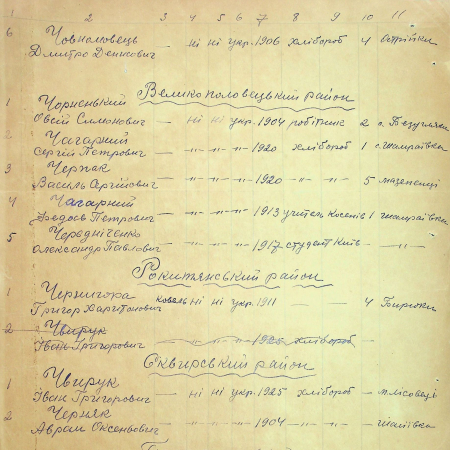 1 2 3 4 5 6 7 8 9 10 11
6 Човномовець
Дмитро Денисович – ні ні укр. 1906 хлібороб 4 Острійки
Великополовецький район
1 Чорненький
Овсій Симонович – ні ні укр. 1904 робітник 2 с. Бездушики
2 Чагарний
Сергій Петрович – -"- -"- -"- 1920 хлібороб 1 с. Шамраївка
3 Черпак
Василь Сергійович – -"- -"- -"- 1920 -"- 5 мазепенці
4 Чагарний
Федось Петрович – -"- -"- -"- 1913 учитель 1 шамраївка
5 Чередніченко
Олександр Павлович – -"- -"- -"- 1917 студент Київ – -"-
Рокитянський район
1 Чернигора
Григор Харитонович ні ні укр. 1911 – – 4 Бирюки
2 Чвирук
Іван Григорович -"- -"- -"- 1925 хлібороб
Сквирський район
1 Чвирук
Іван Григорович – ні ні укр. 1925 хлібороб –
2 Черняк
Аврам Оксенович – -"- -"- -"- 1904 -"- -"- –